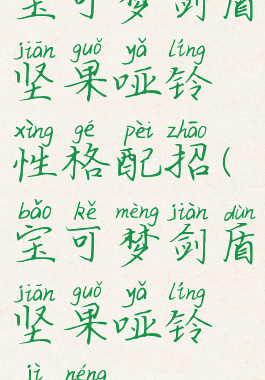 宝可梦剑盾
jiān guǒ yǎ líng
坚果哑铃
xìng gé pèi zhāo
性格配招(
bǎo kě mèng jiàn dùn
宝可梦剑盾
jiān guǒ yǎ líng
坚果哑铃
jì néng